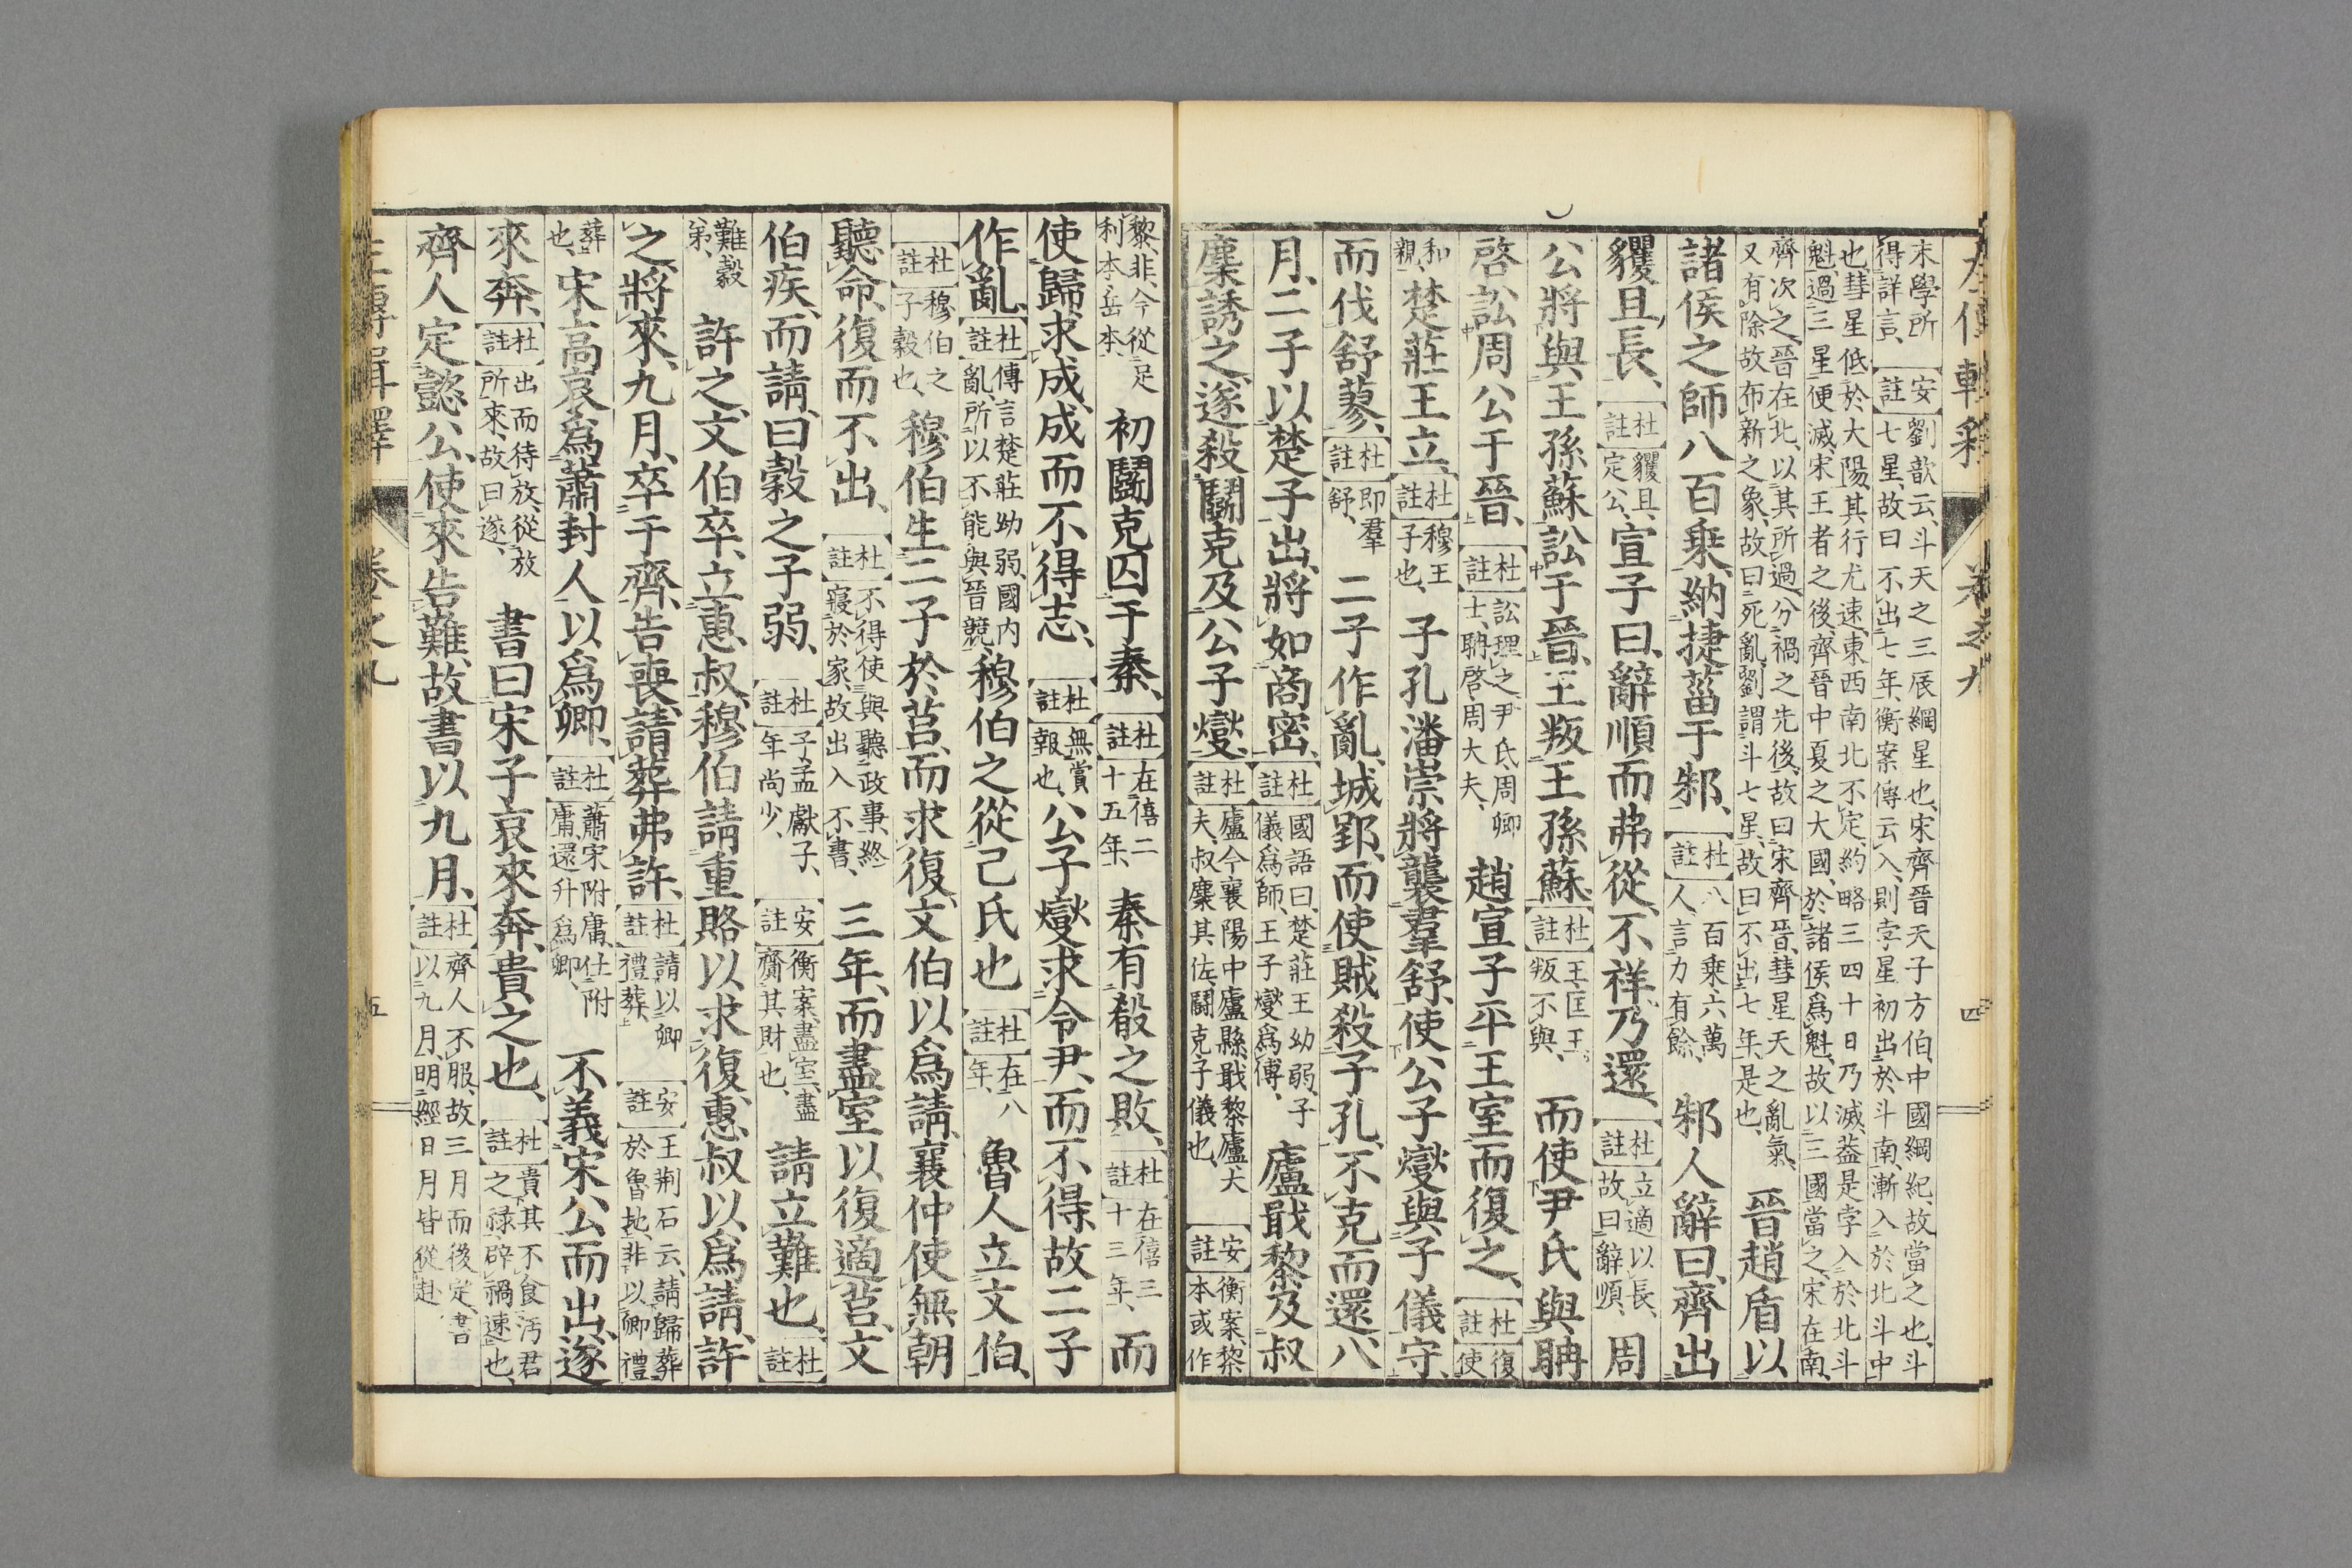 左傳輯釋 卷之九 四
末學所得詳言、安註劉歆云、斗天之三辰綱星也、宋齊晉天子方伯、中國綱紀、故當之也、斗七星、故曰不出七年、衡案傳云入、則孛星初出於斗南、漸入於北斗中
也、彗星低於大陽、其行尤速、東西南北不定、約略三四十日乃滅、葢是孛入於北斗魁、過三星便滅、宋王者之後、齊晉中夏之大國、於諸侯爲魁、故以三國當之、宋在南、
齊次之、晉在北、以其所過分禍之先後、故曰宋齊晉、彗星天之亂氣、又有除故布新之象、故曰死亂、劉謂斗七星、故曰不出七年、是也、晉趙盾以
諸侯之師八百乘、納捷菑于邾、杜註八百乘、六萬人、言力有餘、邾人辭曰、齊出
貜且長、杜註貜且、定公、宣子曰、辭順而弗從、不祥、乃還、杜註立適以長、故曰辭順、周
公將與王孫蘇訟于晉、王叛王孫蘇、杜註王、匡王、叛不與、而使尹氏與聃
啓訟周公于晉、杜註訟理之、尹氏、周卿士、聃啓、周大夫、趙宣子平王室而復之、杜註復使
和親、楚莊王立、杜註穆王子也、子孔潘崇將襲羣舒、使公子燮與子儀守、
而伐舒蓼、杜註即羣舒、二子作亂、城郢、而使賊殺子孔、不克而還、八
月、二子以楚子出、將如商密、杜註國語曰、楚莊王幼弱、子儀爲師、王子燮爲傅、廬戢黎及叔
麇誘之、遂殺鬬克及公子燮、杜註廬今襄陽中廬縣、戢黎廬大夫、叔麇其佐、鬬克子儀也、安註衡案、黎本或作
黎、非、今從足利本岳本、初鬬克囚于秦、杜註在僖二十五年、秦有殽之敗、杜註在僖三十三年、而
使歸求成、成而不得志、杜註無賞報也、公子燮求令尹、而不得、故二子
作亂、杜註傳言楚莊幼弱、國内亂、所以不能與晉競、穆伯之從己氏也杜註在八年、魯人立文伯、
杜註穆伯之子穀也、穆伯生二子於莒、而求復、文伯以爲請、襄仲使無朝
聽命、復而不出、杜註不得使與聽政事、終寢於家、故出入不書、三年、而盡室以復適莒、文
伯疾、而請曰、穀之子弱、杜註子、孟獻子、年尚少、安註衡案、盡室、盡齎其財也、請立難也、杜註
難、穀弟、許之、文伯卒、立惠叔、穆伯請重賂以求復、惠叔以爲請、許
之、將來、九月、卒于齊、告喪、請葬弗許、杜註請以卿禮葬、安註王荊石云、請歸葬於魯地、非以卿禮
葬也、宋高哀爲蕭封人以爲卿、杜註蕭宋附庸、仕附庸、還升爲卿、不義宋公而出、遂
來奔、杜註出而待放、從放所來、故曰遂、書曰宋子哀來奔、貴之也、杜註貴其不食汚君之祿、辟禍速也、
齊人定懿公、使來告難、故書以九月、杜註齊人不服、故三月而後定、書以九月、明經日月皆從赴、
卷之九 五